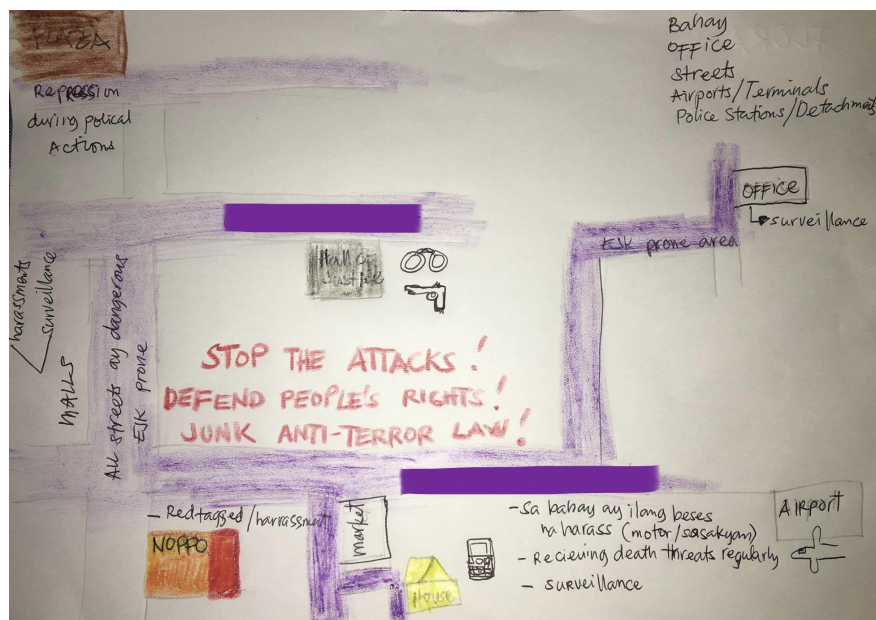 PLAZA
Repression
during polical
Actions
Bahay
OFFICE
streets
Airports/Terminals
Police Stations/Detachment
OFFICE
surveillance
EJK prone area
Hall of
Justice
harassments
surveillance
MALLS
All streets ay dangerous
EJK prone
STOP THE ATTACKS!
DEFEND PEOPLE'S RIGHTS!
JUNK ANTI-TERROR LAW!
- Redtagged/harrassment
NOPPO
market
House
- Sa bahay ay ilang beses
na harass (motor/sasakyan)
- Recieving death threats regularly
- surveillance
AIRPORT